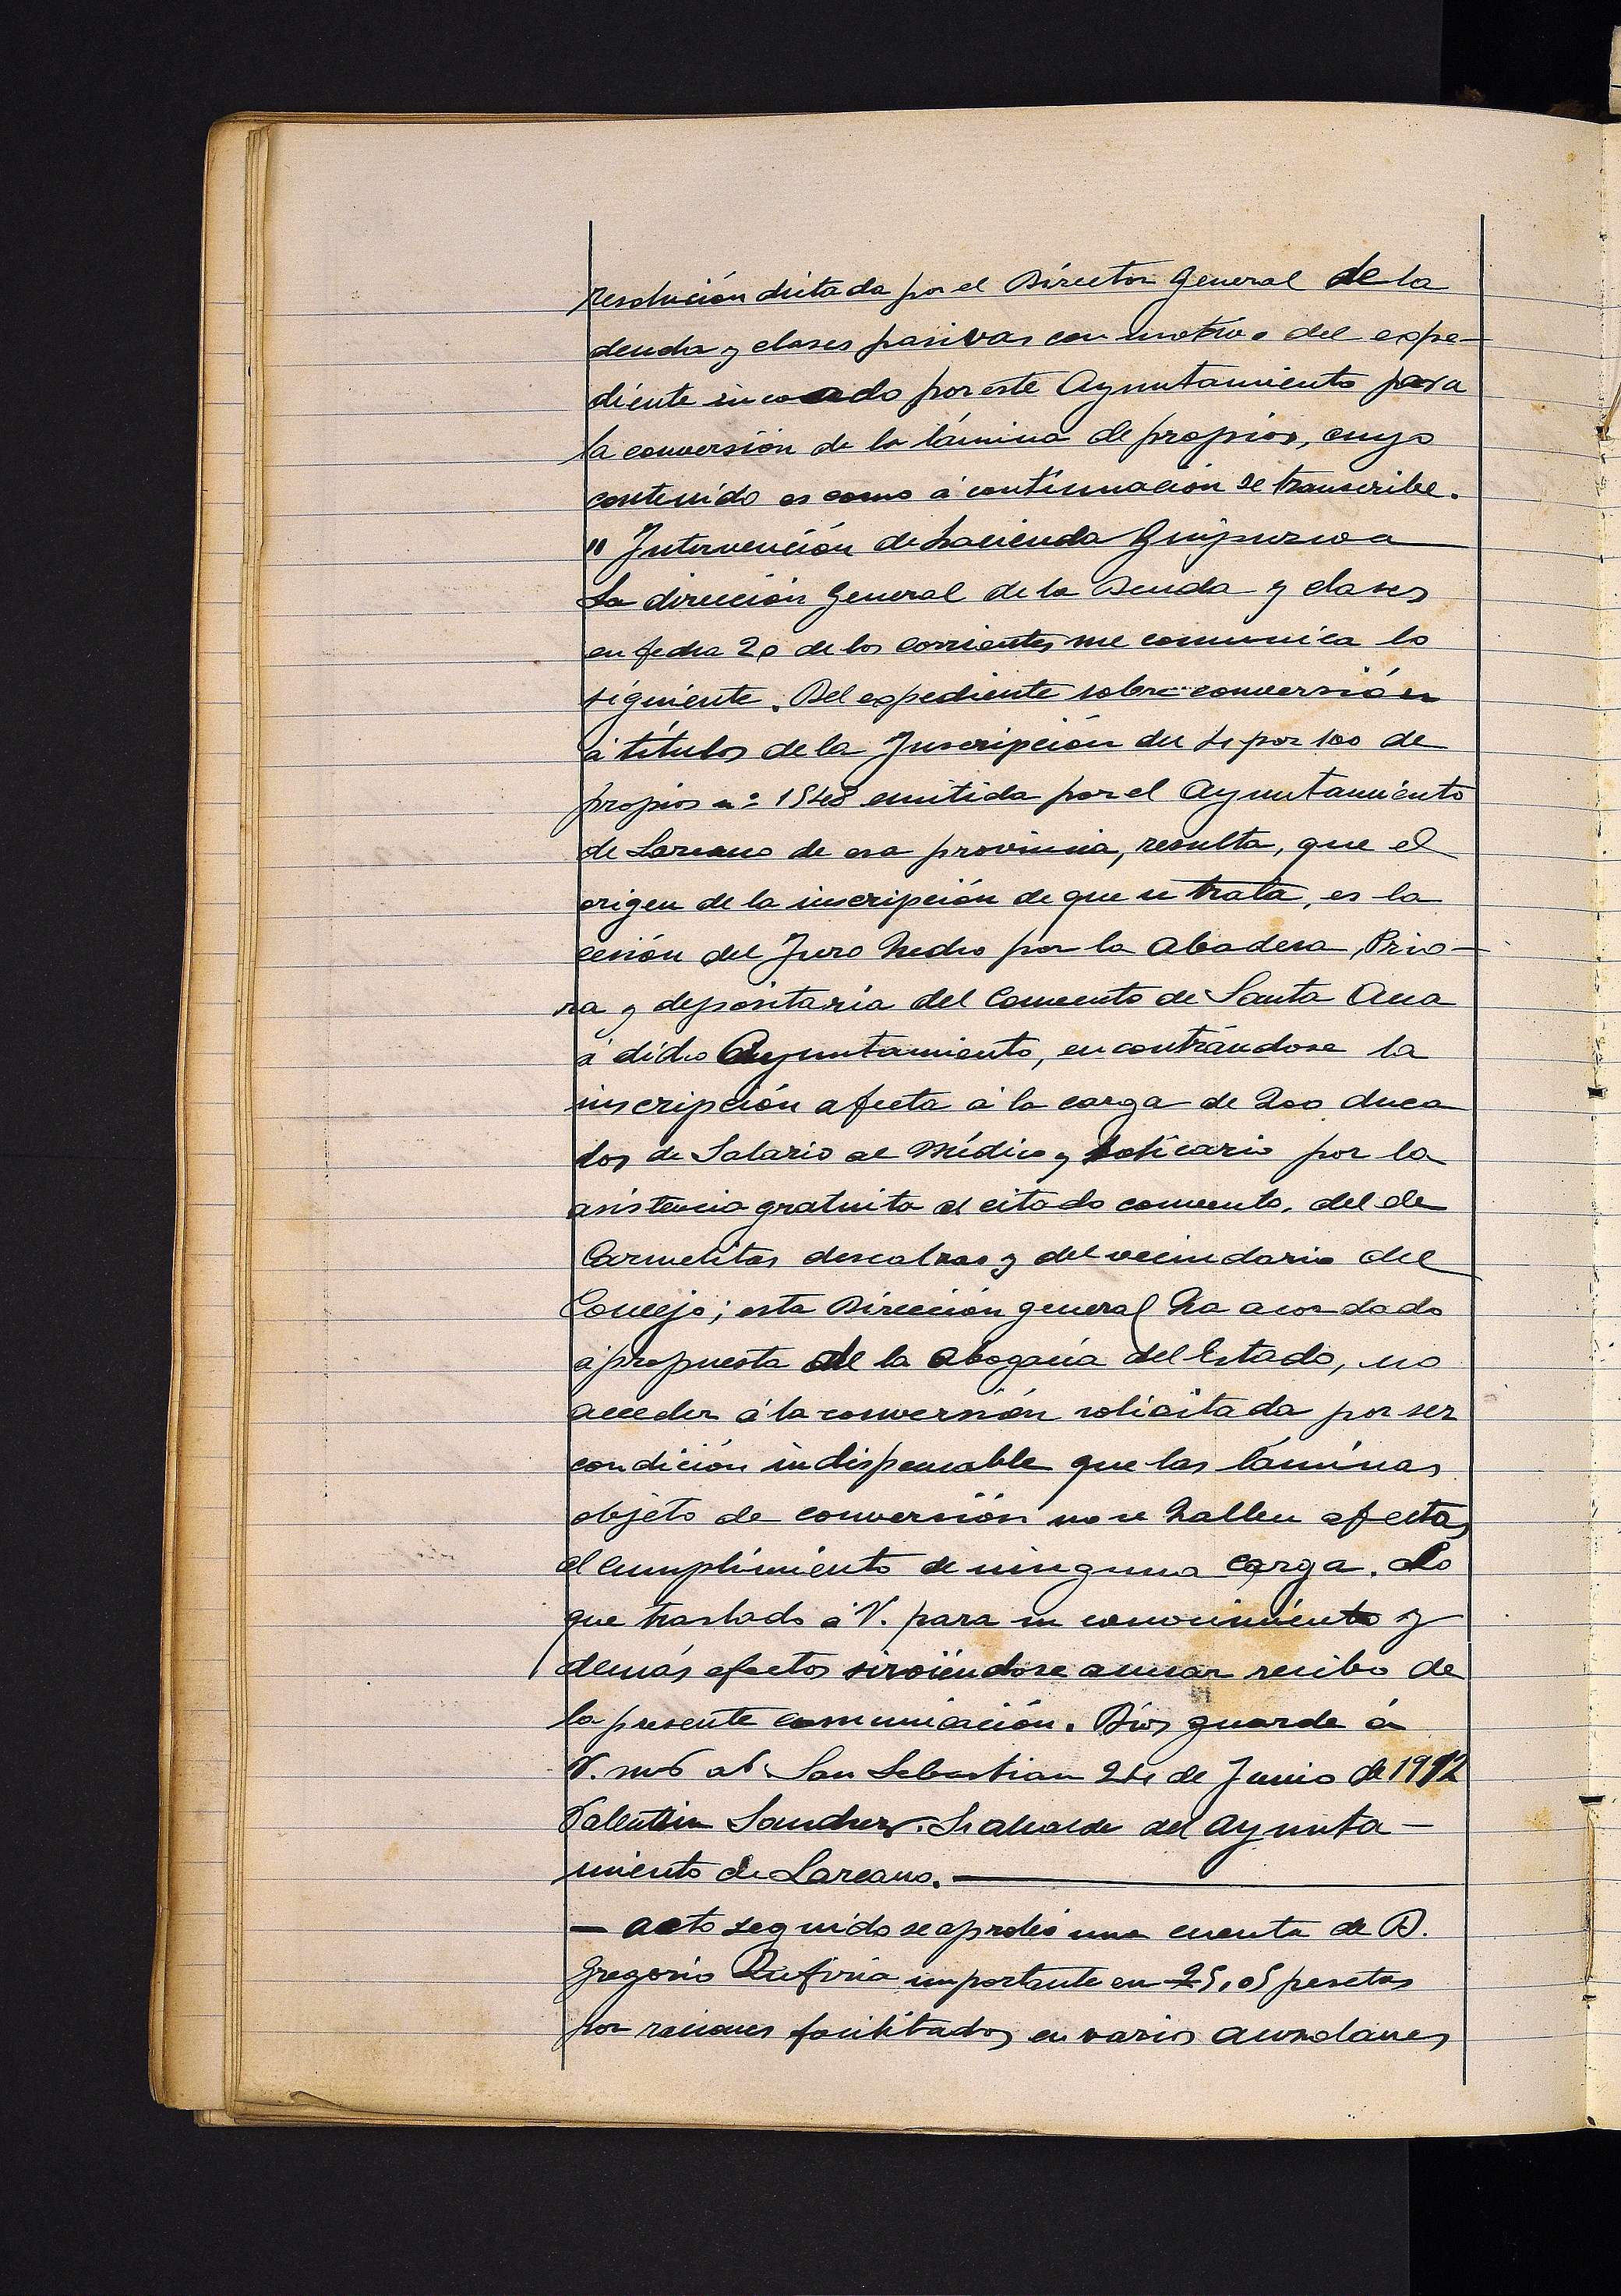 resolución dictada por el Director General de la
deuda y clases pasivas con motivo del expe-
diente incoado por este Ayuntamiento para
la conversión de la lámina de propios, cuyo
contenido es como á continuación se transcribe.
" Intervención de hacienda Guipuzcoa
La dirección General de la Deuda y clases
en fecha 20 de los corrientes me comunica lo
siguiente. Del expediente sobre conversión
á títulos de la Inscripción del 4 por 100 de
propios nº 1548 emitida por el Ayuntamiento
de Lazcano de esa provincia, resulta, que el
origen de la inscripción de que se trata, es la
cesión del Juro hecho por la Abadesa, Prio-
ra y depositaria del Convento de Santa Ana
á dicho Ayuntamiento, encontrándose la
inscripción afecta á la carga de 200 duca
dos de Salario al Médico y boticario por la
asistencia gratuita al citado convento, del de
Carmelitas descalzas y del vecindario del
Concejo; esta Dirección general ha acordado
á propuesta de la Abogacía del Estado, no
acceder á la conversión solicitada por ser
condición indispensable que las láminas
objeto de conversión no se hallen afectas
al cumplimiento de ninguna carga. Lo
que traslado á V. para su conocimiento y
demás efectos sirviéndose acusar recibo de
la presente comunicación. Dios guarde á
V. ms as San Sebastian 24 de Junio de 1912
Valentin Sanchez. Sr alcalde del Ayunta-
miento de Lazcano.
- acto seguido se aprobó una cuenta de D.
Gregorio importante en 25,05 pesetas
por raciones facilitados en varios